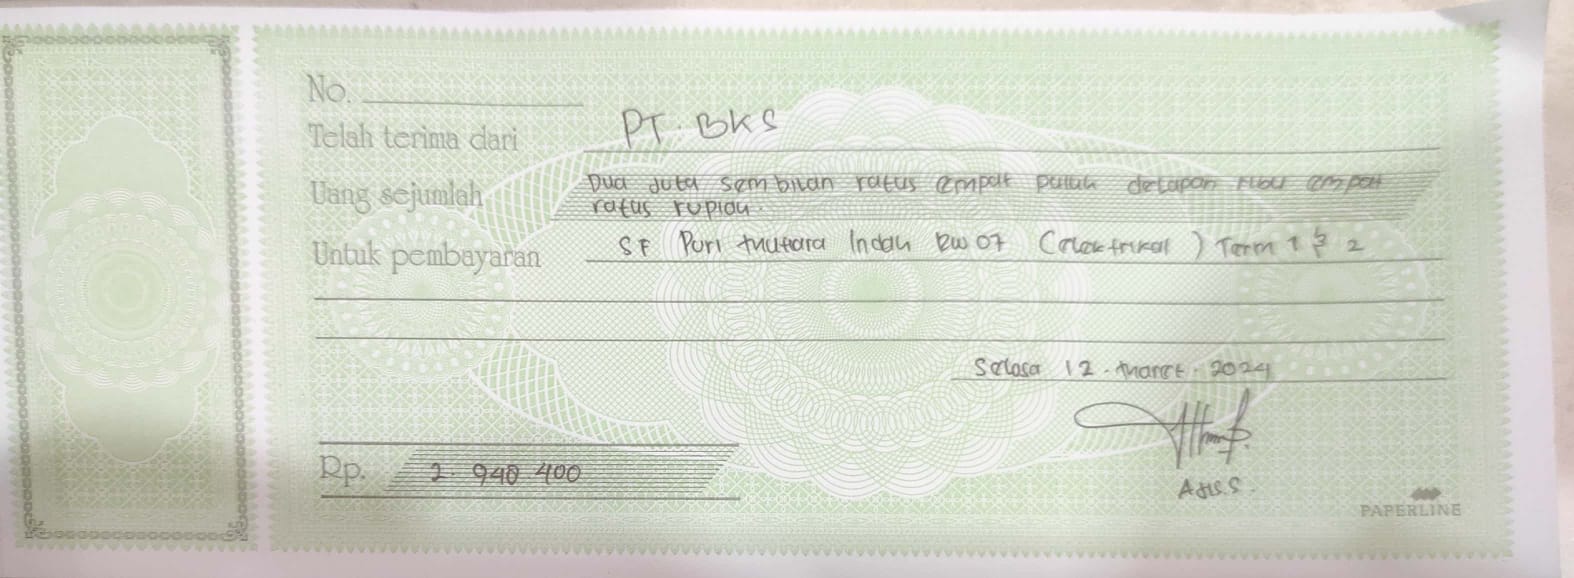 No.
Telah terima dari PT. BKS
Uang sejumlah Dua Juta Sembilan ratus empat puluh delapan ribu empat
ratus rupiah.
Untuk pembayaran SF Puri Mutiara Indah RW 07 (elektrikal) Term 1 & 2
Selasa 12. Maret. 2024
Rp. 2. 948.400
PAPERLINE